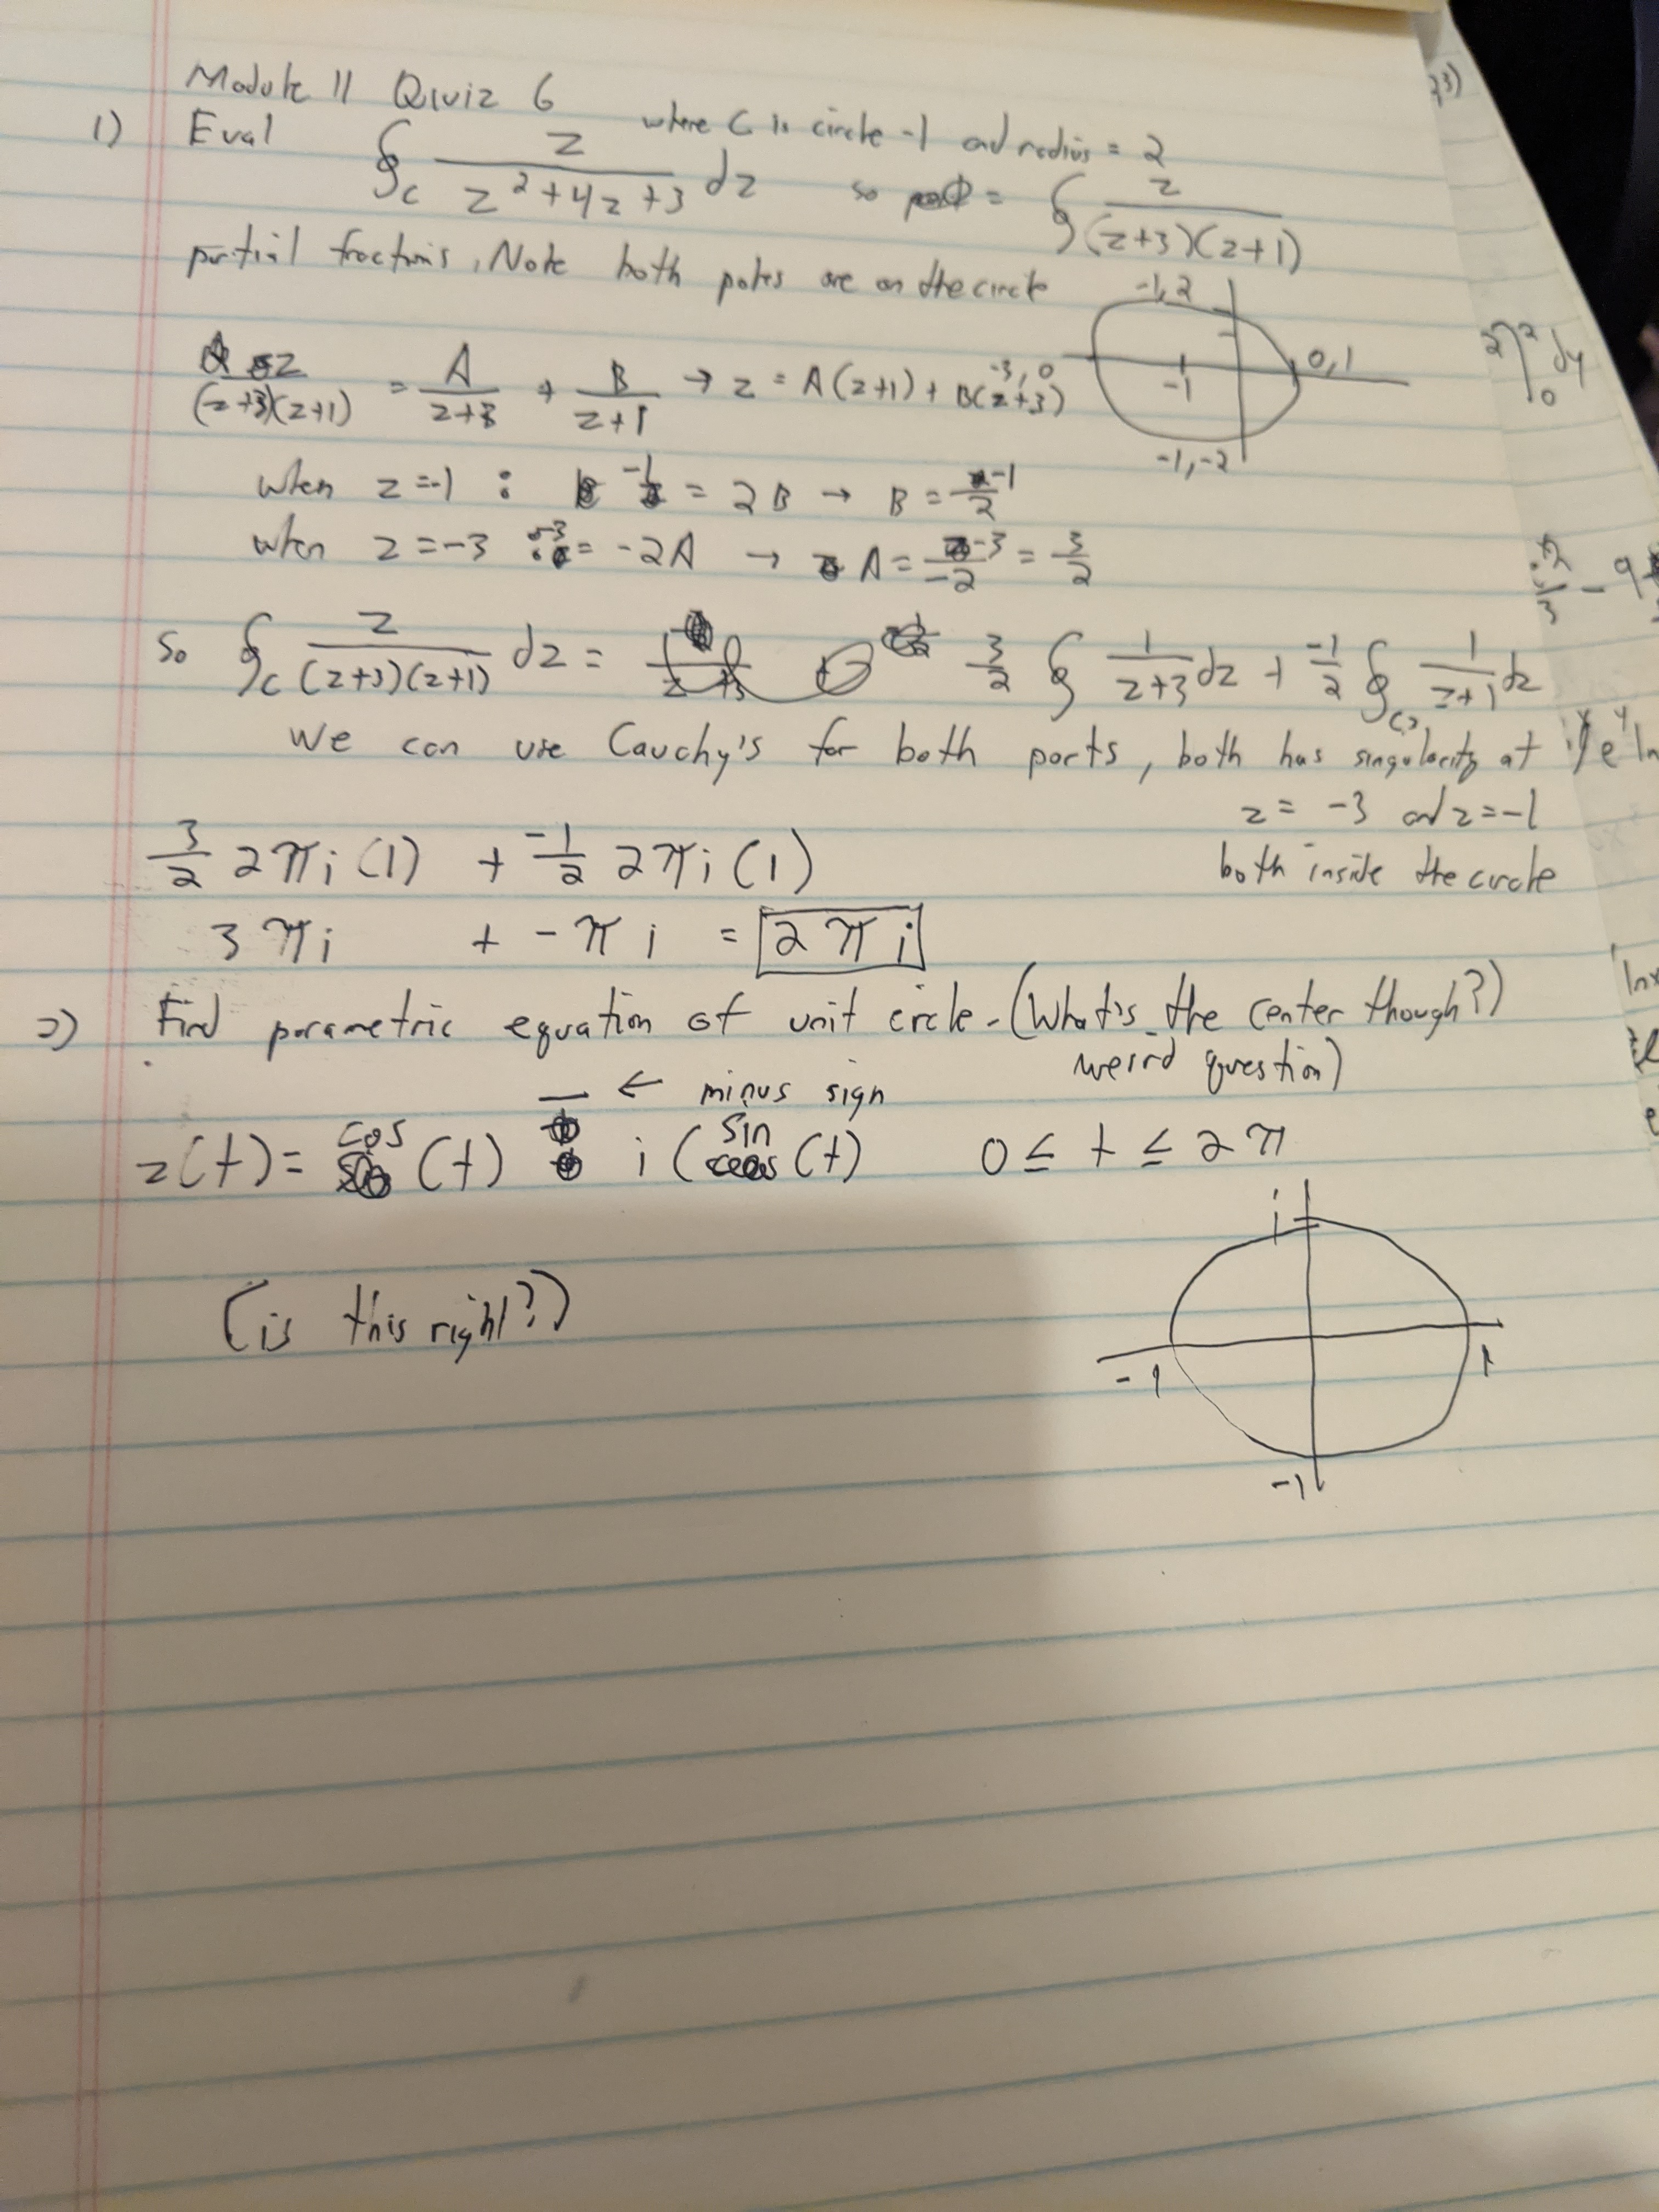 Module 11 Qiuiz 6
1) Eval ∮_C z/(z²+4z+3) dz where C is circle -1 and radius = 2 so = ∮ z/((z+3)(z+1))
partial fractions, Note both poles are on the circle
z/((z+3)(z+1)) = A/(z+3) + B/(z+1) → z = A(z+1) + B(z+3)
-1,2
0,1
-3,0
-1
-1,-2
when z=-1 : -1 = 2B → B = -1/2
when z=-3 : -3 = -2A → A = -3/-2 = 3/2
So ∮_C z/((z+3)(z+1)) dz = 3/2 ∮ 1/(z+3) dz + -1/2 ∮ 1/(z+1) dz
We can use Cauchy's for both parts, both has singularity at
z = -3 and z=-1
both inside the circle
3/2 2πi(1) + -1/2 2πi(1)
3πi + -πi = 2πi
2) Find parametric equation of unit circle. (What's the center though?)
weird question)
— ← minus sign
z(t) = cos(t) i(sin(t) 0 ≤ t ≤ 2π
i
-1 1
-1
(is this right?)
2]²₀ dy